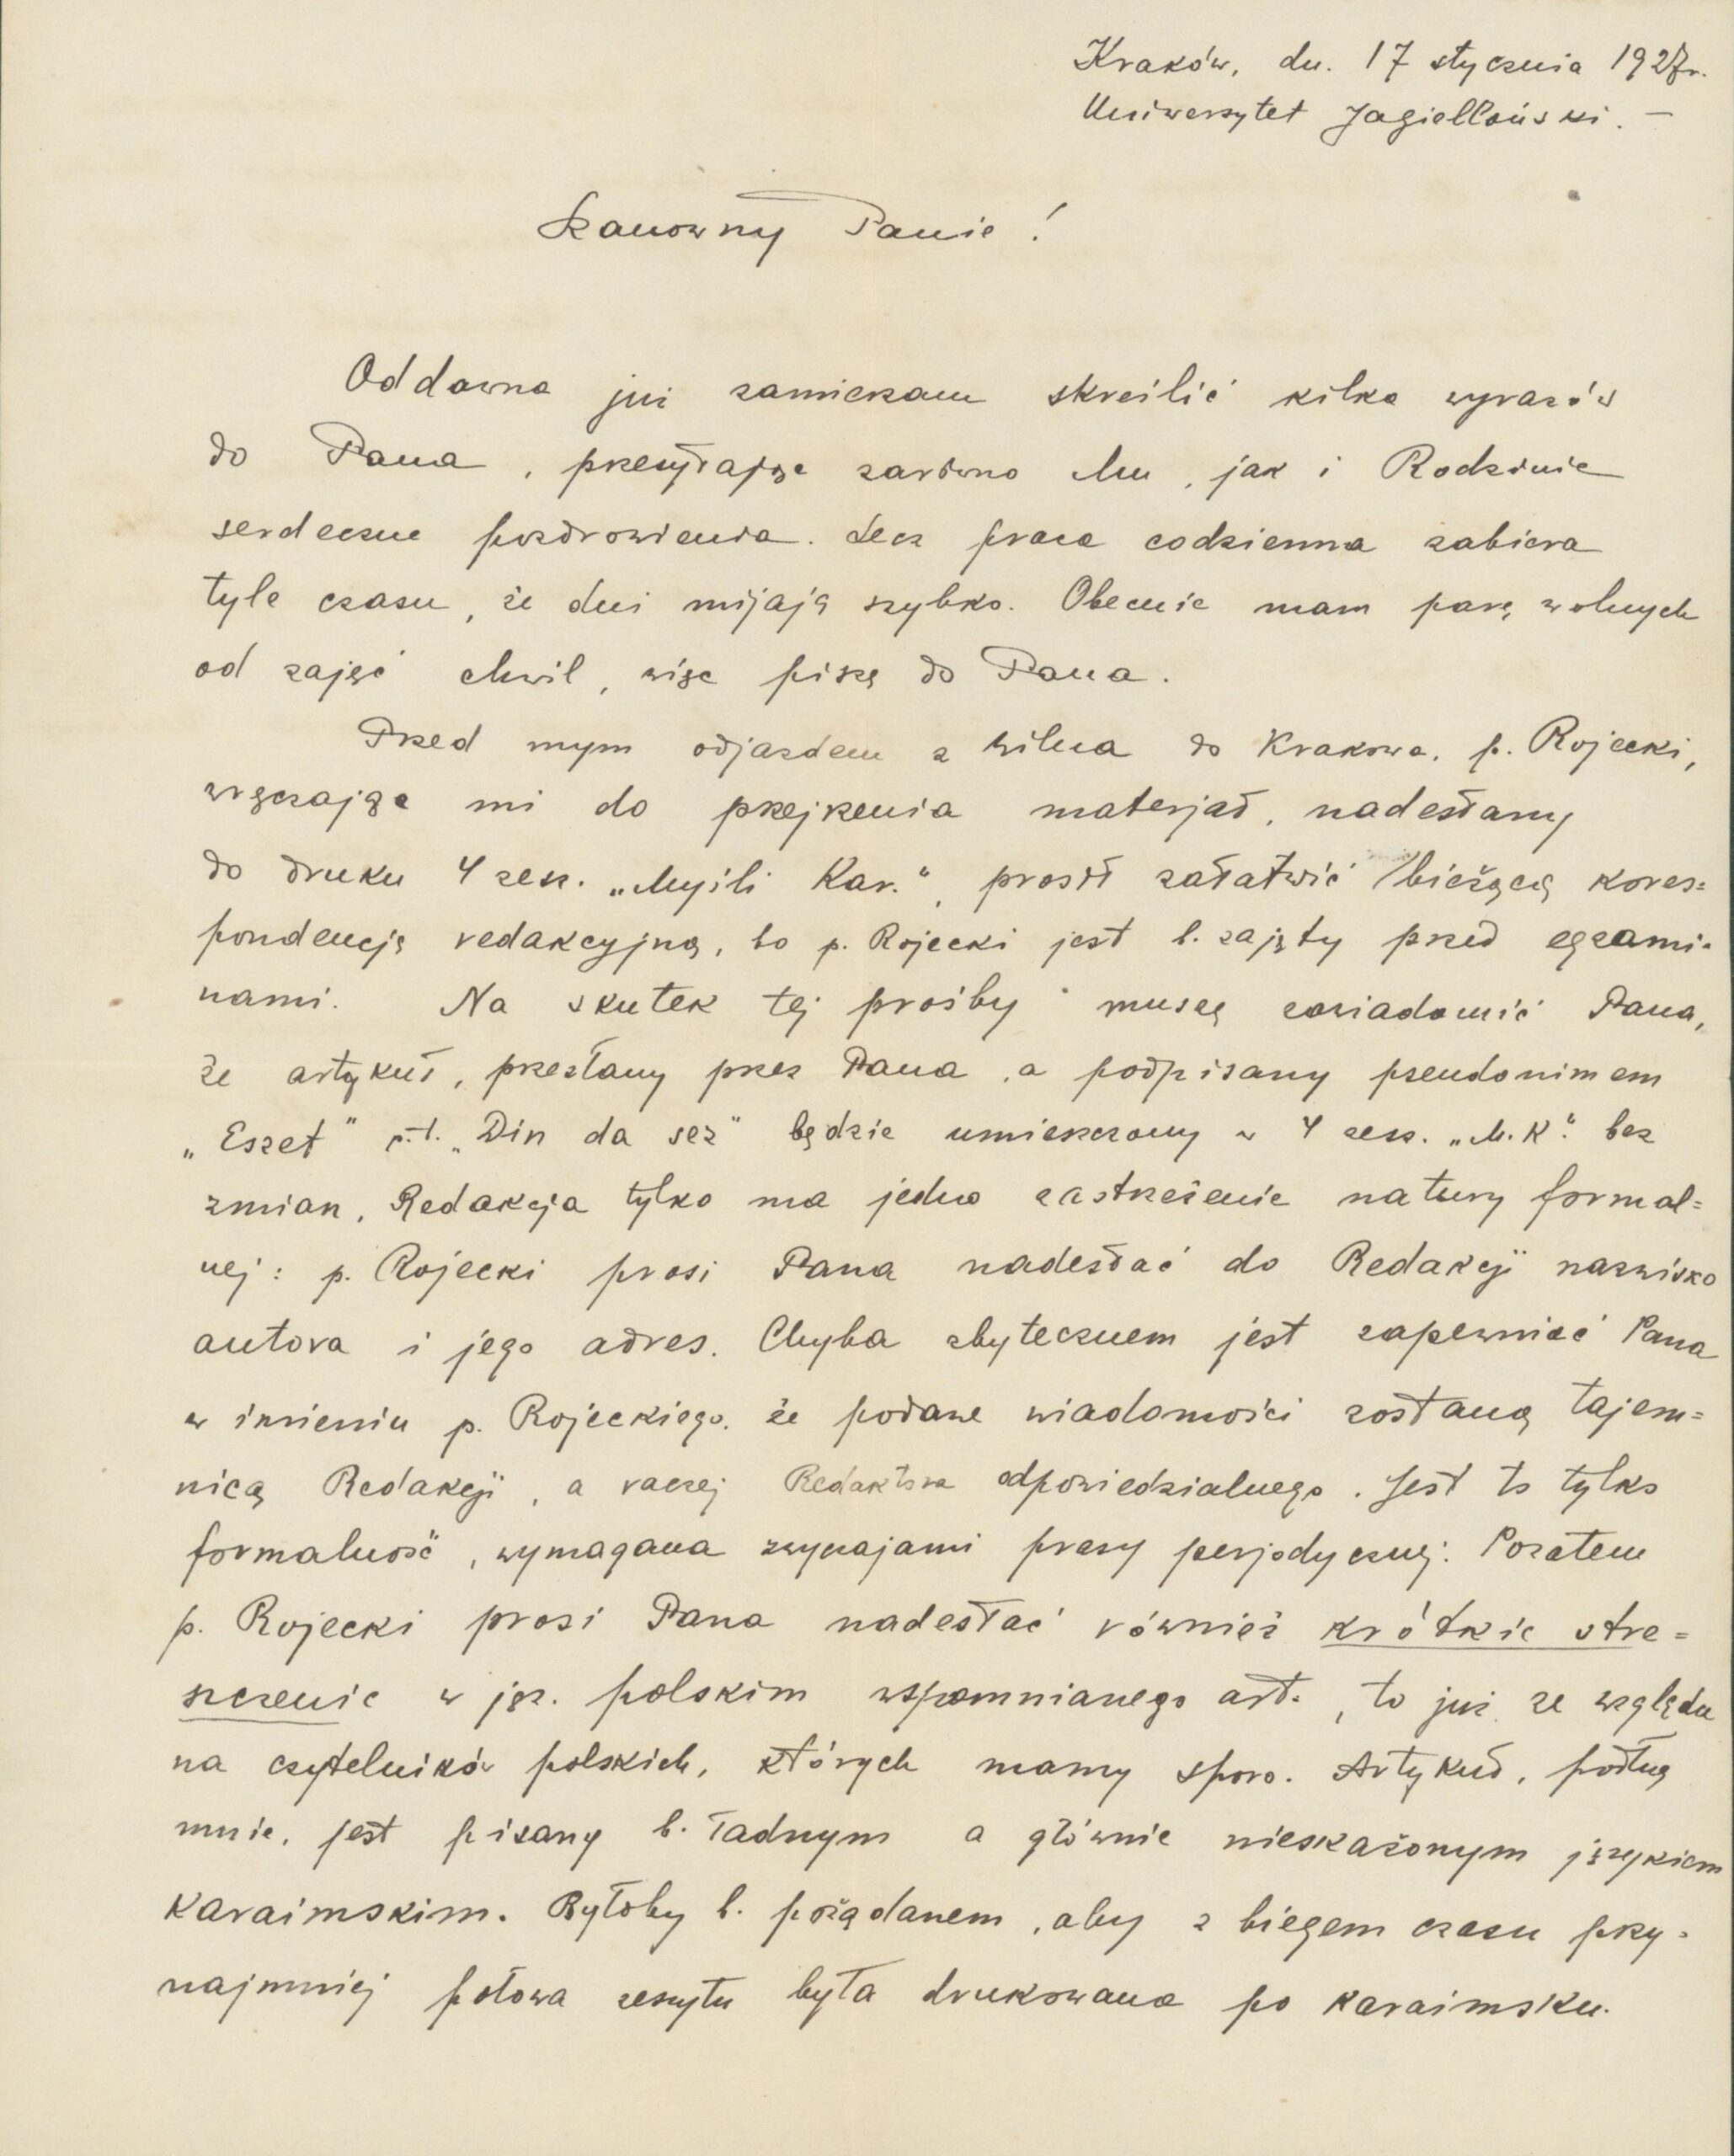 Kraków, dn. 17 stycznia 1927r.
Uniwersytet Jagielloński. –
Szanowny Panie!
Oddawna już zamierzam skreślić kilka wyrazów
do Pana, przesyłając zarówno Mu, jak i Rodzinie
serdeczne pozdrowienia. Lecz praca codzienna zabiera
tyle czasu, że dni mijają szybko. Obecnie mam parę wolnych
od zajęć chwil, więc piszę do Pana.
Przed mym odjazdem z Wilna do Krakowa, p. Rojecki,
wręczając mi do przejrzenia materjał, nadesłany
do druku 4 zesz. „Myśli Kar.", prosił załatwić bieżącą kores=
pondencję redakcyjną, bo p. Rojecki jest b. zajęty przed egzami-
nami. Na skutek tej prośby muszę zawiadomić Pana,
że artykuł, przesłany przez Pana, a podpisany pseudonimem
„Eszet" p.t. „Din da sez" będzie umieszczony w 4 zesz. „M.K". bez
zmian. Redakcja tylko ma jedno zastrzeżenie natury formal=
nej: p. Rojecki prosi Pana nadesłać do Redakcji nazwisko
autora i jego adres. Chyba zbytecznem jest zapewniać Pana
w imieniu p. Rojeckiego, że podane wiadomości zostaną tajem=
nicą Redakcji, a raczej Redaktora odpowiedzialnego. Jest to tylko
formalność, wymagana zwyczajami prasy perjodycznej. Pozatem
p. Rojecki prosi Pana nadesłać również krótkie stre=
szczenie w jęz. polskim wspomnianego art., to już ze względu
na czytelników polskich, których mamy sporo. Artykuł, podług
mnie, jest pisany b. ładnym a głównie nieskażonym językiem
karaimskim. Byłoby b. pożądanem, aby z biegem czasu przy-
najmniej połowa zeszytu była drukowana po karaimsku.